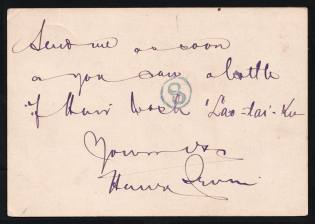 Send me as soon
as you can a bottle
of Hair Wash 'Lao-tai-Ku
8
Yours
Henry Irving